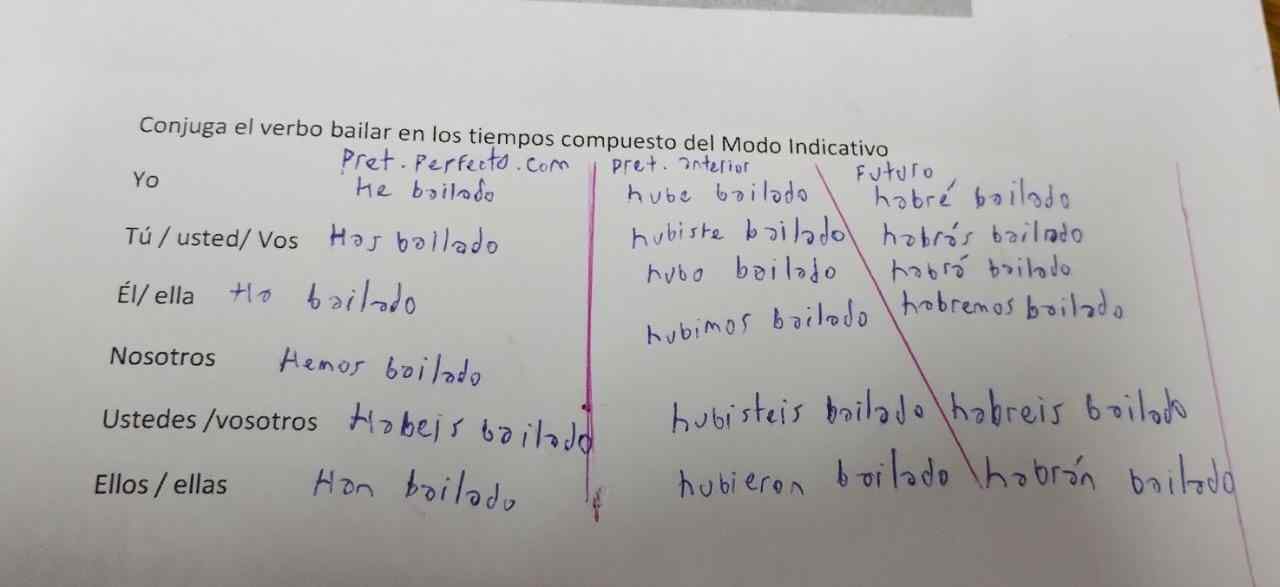 Conjuga el verbo bailar en los tiempos compuesto del Modo Indicativo
Pret. Perfecto. com Pret. anterior Futuro
Yo he bailado hube bailado habré bailado
Tú / usted/ Vos Has bailado hubiste bailado habrás bailado
hubo bailado habrá bailado
Él/ ella Ha bailado
hubimos bailado habremos bailado
Nosotros Hemos bailado
Ustedes /vosotros Habeis bailado hubisteis bailado habreis bailado
Ellos / ellas Han bailado hubieron bailado habrán bailado